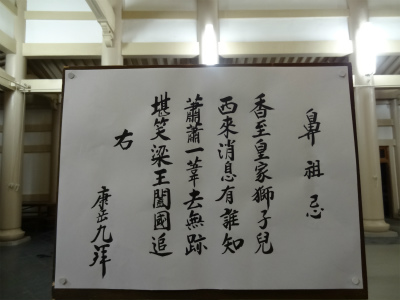 鼻祖忌
香至皇家獅子兒
西來消息有誰知
蕭蕭一葦去無跡
堪笑梁王闔國追
右
康岳九拝